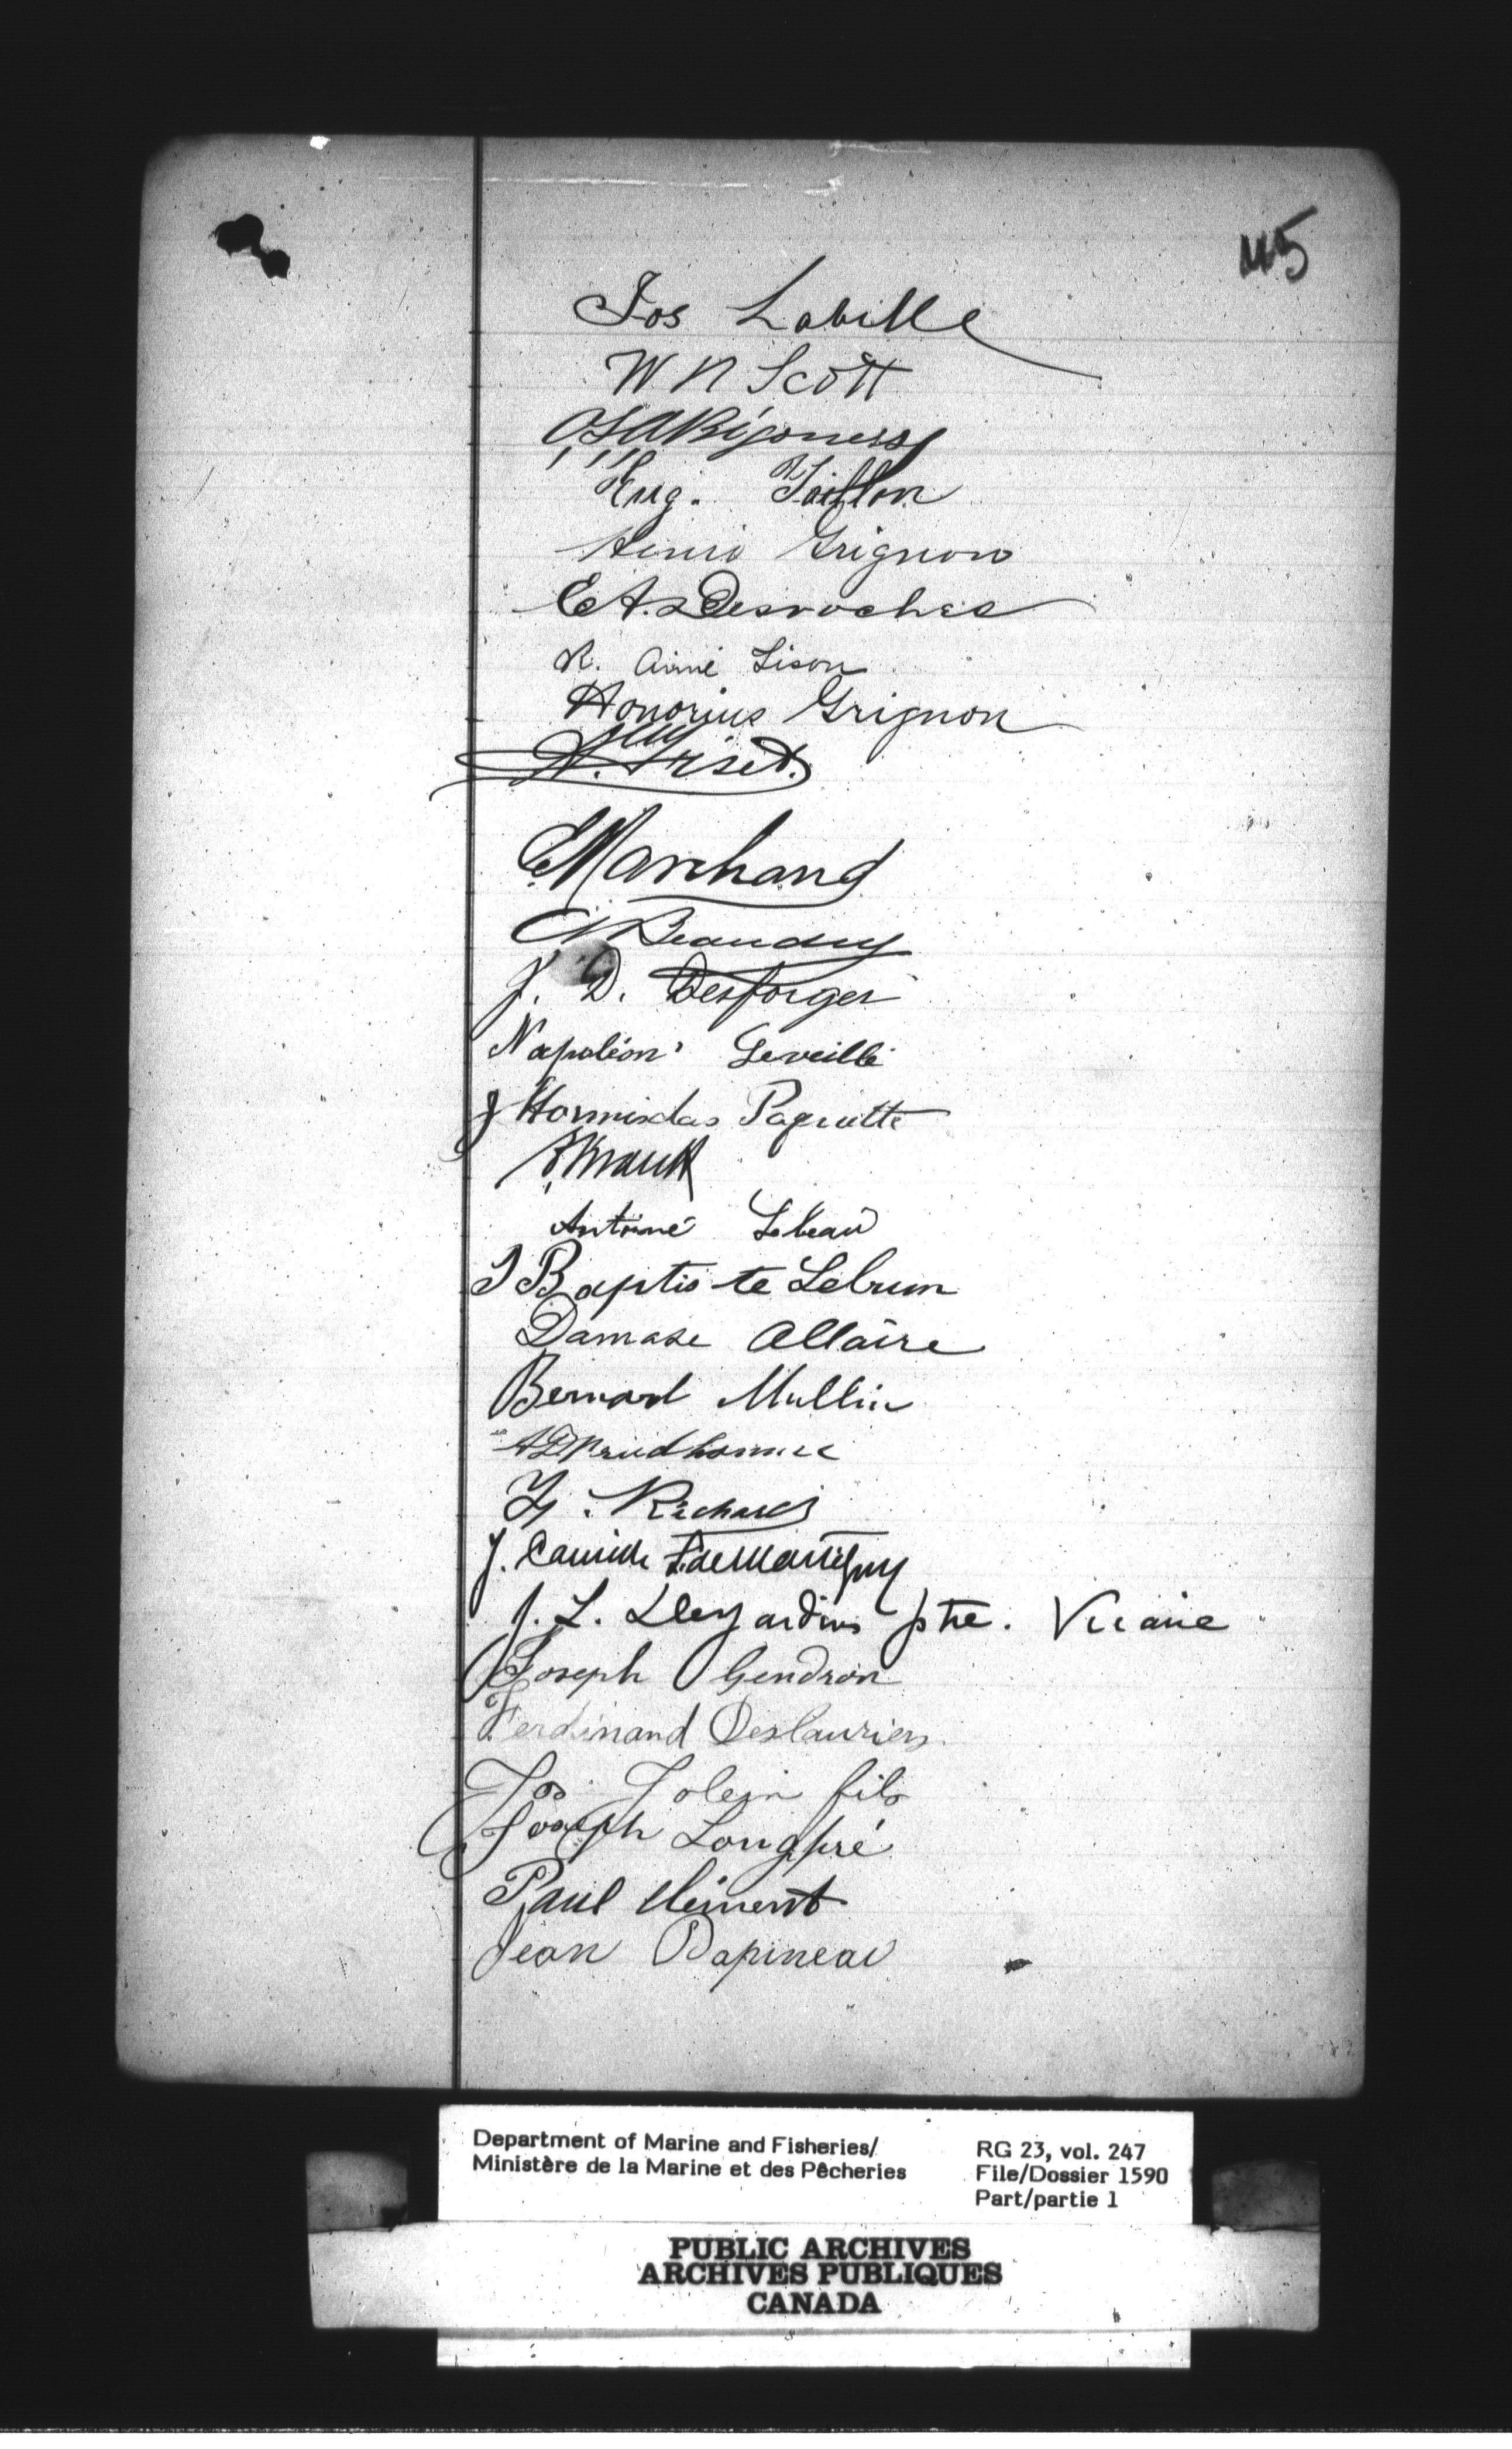 45
Jos Labille
W N Scott
Eug. Taillon
Henri Grignon
E A. Desroches
R. Aimé Lison
Honorius Grignon
E. Marchand
Beaudry
J. D. Desforges
Napoléon Leveillé
J Hormisdas Paquette
Antoine Lebeau
J Baptiste Lebrun
Damase Allaire
Bernard Mullin
Prudhomme
Richard
J. Camille de Martigny
J. L. Desjardins ptre. Vicaire
Joseph Gendron
Ferdinand Deslauriers
Jos fils
Joseph Longpré
Paul Clément
Jean Papineau
Department of Marine and Fisheries/
Ministère de la Marine et des Pêcheries
RG 23, vol. 247
File/Dossier 1590
Part/partie 1
PUBLIC ARCHIVES
ARCHIVES PUBLIQUES
CANADA